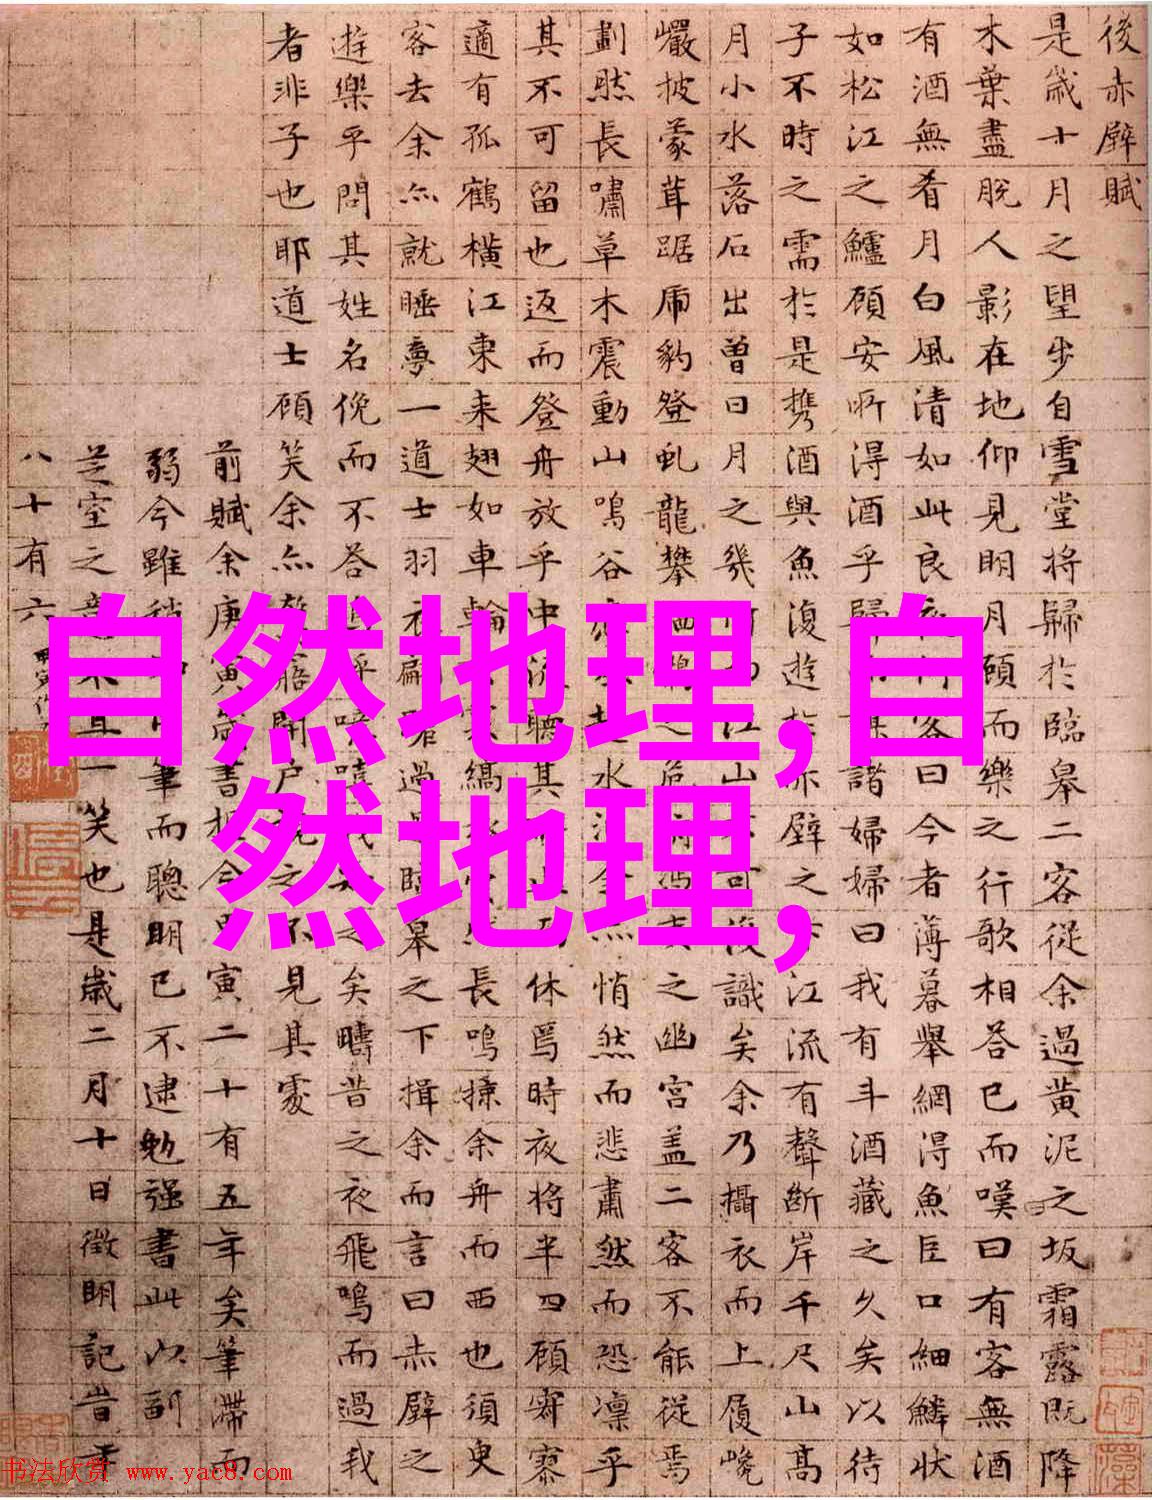 後赤壁賦
是歳十月之望步自雪堂将歸於臨皋二客從余過黄泥之坂霜露既降
木葉盡脫人影在地仰見明月顧而樂之行歌相答已而嘆曰有客無酒
有酒無肴月白風清如此良夜何客曰今者薄暮舉網得魚巨口細鱗状
如松江之鱸顧安所得酒乎歸謀諸婦婦曰我有斗酒藏之久矣以待
子不時之需於是携酒與魚復遊於赤壁之下江流有聲断岸千尺山高
月小水落石出曾日月之幾何而江山可復識矣余乃攝衣而上履巉
巖披蒙茸踞虎豹登虬龍攀栖鶻之危俯馮夷之幽宮盖二客不能從焉
劃然長嘯草木震動山鳴谷應起水涌余悄然而悲肅然而恐凜乎
其不可留也返而登舟放乎中流聽其止而休焉時夜将半四顧寂寥
適有孤鶴橫江東来翅如車輪裳縞衣然長鳴掠余舟而西也須臾
客去余亦就睡夢一道士羽衣翩過臨皋之下揖余而言曰赤壁之
遊樂乎問其姓名俛而不答嗚呼噫嘻我知之矣疇昔之夜飛鳴而過我
者非子也耶道士顧笑余亦驚寤開户視之不見其處
前賦余庚寅歲書抵今丙寅二十有五年矣筆滯而
弱今雖稍筆而聰明已不逮勉强書此以副
芝室之意一笑也是歳二月十日徵明記旹年
八十有六
自然地理,自
然地理,
书法欣赏 www.yac8.com